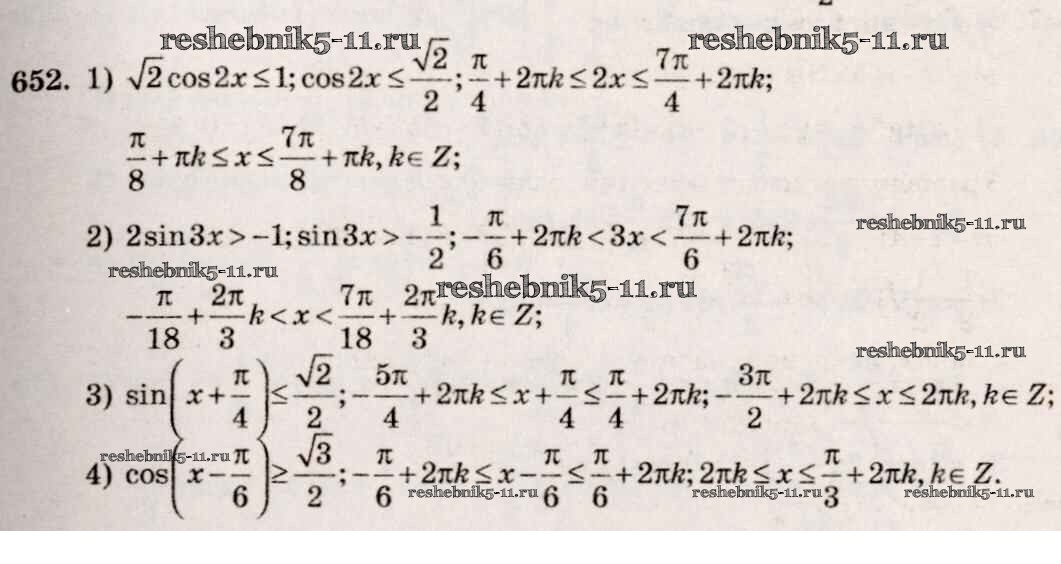 reshebnik5-11.ru reshebnik5-11.ru
652. 1) √2 cos2x ≤ 1; cos2x ≤ √2/2; π/4 + 2πk ≤ 2x ≤ 7π/4 + 2πk;
π/8 + πk ≤ x ≤ 7π/8 + πk, k ∈ Z;
reshebnik5-11.ru
2) 2sin3x > -1; sin3x > -1/2; -π/6 + 2πk < 3x < 7π/6 + 2πk;
reshebnik5-11.ru
reshebnik5-11.ru
-π/18 + 2π/3 k < x < 7π/18 + 2π/3 k, k ∈ Z;
reshebnik5-11.ru
3) sin(x + π/4) ≤ √2/2; -5π/4 + 2πk ≤ x + π/4 ≤ π/4 + 2πk; -3π/2 + 2πk ≤ x ≤ 2πk, k ∈ Z;
reshebnik5-11.ru
4) cos(x - π/6) ≥ √3/2; -π/6 + 2πk ≤ x - π/6 ≤ π/6 + 2πk; 2πk ≤ x ≤ π/3 + 2πk, k ∈ Z.
reshebnik5-11.ru reshebnik5-11.ru reshebnik5-11.ru